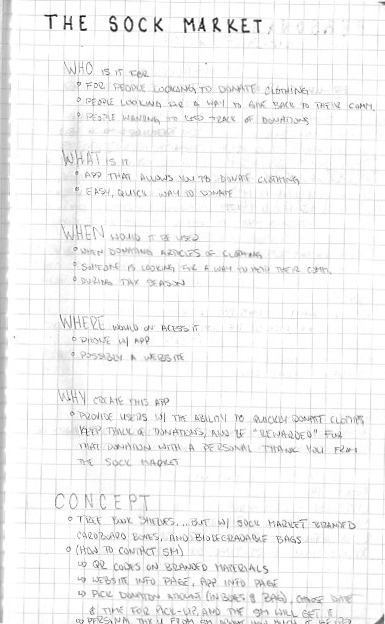 THE SOCK MARKET
WHO IS IT FOR
FOR PEOPLE LOOKING TO DONATE CLOTHING
PEOPLE LOOKING FOR A WAY TO GIVE BACK TO THEIR COMM.
PEOPLE WANTING TO KEEP TRACK OF DONATIONS
WHAT IS IT
APP THAT ALLOWS YOU TO DONATE CLOTHING
EASY, QUICK WAY TO DONATE
WHEN WOULD IT BE USED
WHEN DONATING ARTICLES OF CLOTHING
SOMEONE IS LOOKING FOR A WAY TO HELP THEIR COMM.
DURING TAX SEASON
WHERE WOULD U ACCESS IT
PHONE W/ APP
POSSIBLY A WEBSITE
WHY CREATE THIS APP
PROVIDE USERS W/ THE ABILITY TO QUICKLY DONATE CLOTHES
KEEP TRACK OF DONATIONS, AND BE "REWARDED" FOR
THAT DONATION WITH A PERSONAL THANK YOU FROM
THE SOCK MARKET
CONCEPT
... BUT W/ SOCK MARKET BRANDED
CARDBOARD BOXES, AND BIODEGRADABLE BAGS
(HOW TO CONTACT SM)
QR CODES ON BRANDED MATERIALS
WEBSITE INFO PAGE, APP INFO PAGE
PICK DONATION AMOUNT (IN BOXES & BAG), CHOOSE DATE
& TIME FOR PICK-UP, AND THE SM WILL GET IT
PERSONAL FROM SM